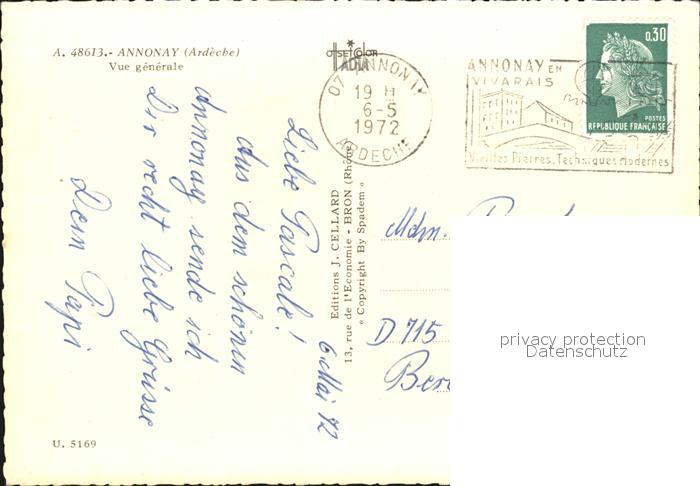 A. 48613.- ANNONAY (Ardèche)
Vue générale
OFFSETCOLOR
IADIA
07 ANNONAY
19 H
6-5
1972
ARDECHE
ANNONAY EN
VIVARAIS
Vieilles Pierres. Techniques Modernes
0,30
POSTES
REPUBLIQUE FRANÇAISE
6 Mai 72
Liebe Pascale!
Aus dem schönen
Annonay sende ich
Dir recht liebe Grüsse
Dein Papi
Editions J. CELLARD
13, rue de l'Economie - BRON (Rhône)
« Copyright By Spadem »
Mdm.
D 715
privacy protection
Datenschutz
U. 5169